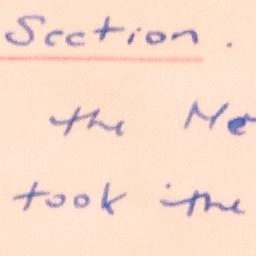 Section.
the Me
took the